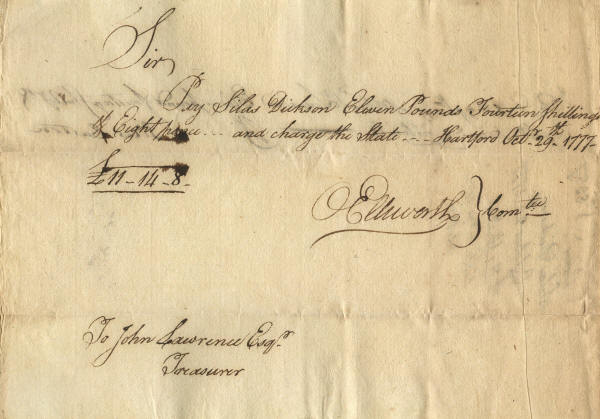 Sir
Pay Silas Dickson Elwen Pounds Fourteen Shillings
& Eight pence --- and charge the State --- Hartford Octr. 29th. 1777-
£11-14-8-
OEllsworth } Comtee
To John Lawrence Esqr.
Treasurer